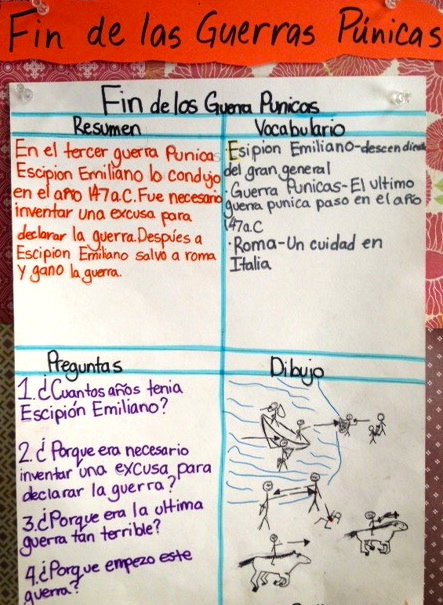 Fin de las Guerras Púnicas
Fin de los Guerra Punicas
Resumen
En el tercer guerra Punica
Escipion Emiliano lo condujo
en el año 147a.C. Fue necesario
inventar una excusa para
declarar la guerra. Despúes a
Escipion Emiliano salvo a roma
y gano la guerra.
Vocabulario
Esipion Emiliano-descendiend
del gran general
·Guerra Punicas-El ultimo
guerra punica paso en el año
147a.C
·Roma-Un cuidad en
Italia
Preguntas
1. ¿Cuantos años tenia
Escipión Emiliano?
2. ¿Porque era necesario
inventar una excusa para
declarar la guerra?
3. ¿Porque era la ultima
guerra tan terrible?
4. ¿Porque empezo este
guerra?
Dibujo